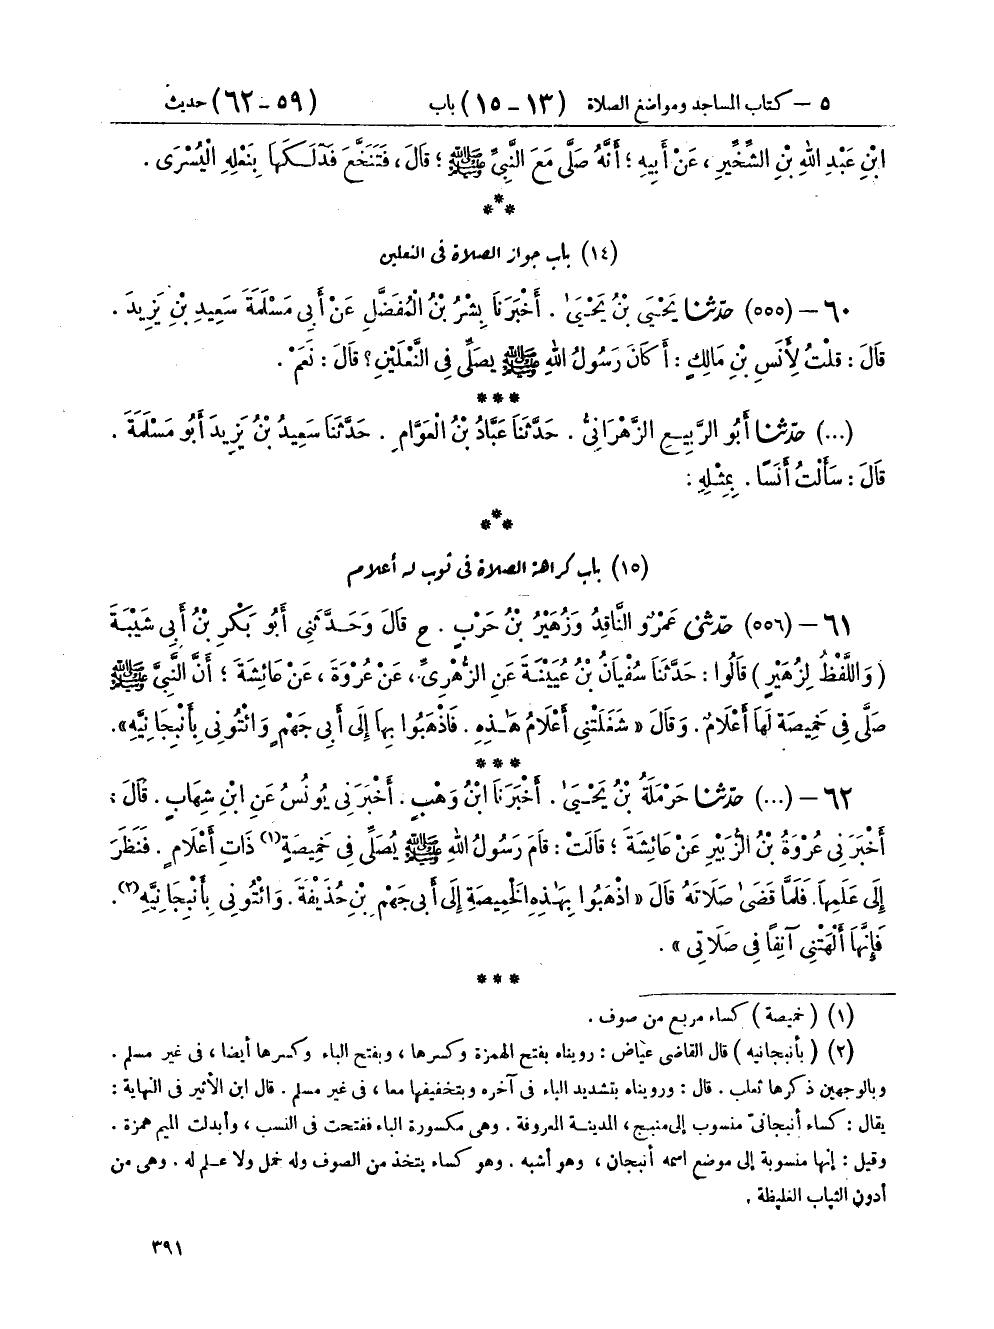 ٥ – كتاب المساجد ومواضع الصلاة (١٣ – ١٥) باب (٥٩ – ٦٢) حديث
ابْنِ عَبْدِ اللهِ بْنِ الشِّخِّيرِ، عَنْ أَبِيهِ؛ أَنَّهُ صَلَّى مَعَ النَّبِيِّ ﷺ؛ قَالَ، فَتَنَخَّعَ فَدَلَكَهَا بِنَعْلِهِ الْيُسْرَى.
***
(١٤) باب جواز الصلاة فى النعلين
٦٠ – (٥٥٥) حدّثنا يَحْيَى بْنُ يَحْيَىٰ. أَخْبَرَنَا بِشْرُ بْنُ الْمُفَضَّلِ عَنْ أَبِي مَسْلَمَةَ سَعِيدِ بْنِ يَزِيدَ.
قَالَ: قلْتُ لِأَنَسِ بْنِ مَالِكٍ: أَكَانَ رَسُولُ اللهِ ﷺ يصَلِّى فِى النَّعْلَيْنِ؟ قَالَ: نَعَمْ.
***
(...) حدّثنا أَبُو الرَّبِيعِ الزَّهْرَانِيُّ. حَدَّثَنَا عَبَّادُ بْنُ الْعَوَّامِ. حَدَّثَنَا سَعِيدُ بْنُ يَزِيدَ أَبُو مَسْلَمَةَ.
قَالَ: سَأَلْتُ أَنَسًا. بِمِثْلِهِ:
***
(١٥) باب كراهة الصلاة فى ثوب له أعلام
٦١ – (٥٥٦) حدّثنى عَمْرٌو النَّاقِدُ وَزُهَيْرُ بْنُ حَرْبٍ. ح قَالَ وَحَدَّثَنِى أَبُو بَكْرِ بْنُ أَبِى شَيْبَةَ
(وَاللَّفْظُ لِزُهَيْرٍ) قَالُوا: حَدَّثَنَا سُفْيَانُ بْنُ عُيَيْنَةَ عَنِ الزُّهْرِىِّ، عَنْ عُرْوَةَ، عَنْ عَائِشَةَ؛ أَنَّ النَّبِيَّ ﷺ
صَلَّى فِى خَمِيصَةٍ لَهَا أَعْلَامٌ. وَقَالَ « شَغَلَتْنِى أَعْلَامُ هَٰذِهِ. فَاذْهَبُوا بِهَا إِلَى أَبِى جَهْمٍ وَائْتُونِى بِأَنْبِجَانِيَّهِ».
***
٦٢ – (...) حدّثنا حَرْمَلَةُ بْنُ يَحْيَىٰ. أَخْبَرَنَا ابْنُ وَهْبٍ. أَخْبَرَنِى يُونُسُ عَنِ ابْنِ شِهَابٍ. قَالَ:
أَخْبَرَنِى عُرْوَةُ بْنُ الزُّبَيْرِ عَنْ عَائِشَةَ؛ قَالَتْ: قَامَ رَسُولُ اللهِ ﷺ يُصَلِّى فِى خَمِيصَةٍ(١) ذَاتِ أَعْلَامٍ. فَنَظَرَ
إِلَى عَلَمِهَا. فَلَمَّا قَضَىٰ صَلَاتَهُ قَالَ « اذْهَبُوا بِهَٰذِهِ الْخَمِيصَةِ إِلَى أَبِى جَهْمِ بْنِ حُذَيْفَةَ. وَائْتُونِى بِأَنْبِجَانِيَّهِ(٢).
فَإِنَّهَا أَلْهَتْنِى آنِفًا فِى صَلَاتِى ».
***
(١) (خميصة) كساء مربع من صوف.
(٢) (بأنبجانيه) قال القاضى عياض: رويناه بفتح الهمزة وكسرها، وبفتح الباء وكسرها أيضا، فى غير مسلم.
وبالوجهين ذكرها ثعلب. قال: ورويناه بتشديد الياء فى آخره وبتخفيفها معا، فى غير مسلم. قال ابن الأثير فى النهاية:
يقال: كساء أنبجانىّ منسوب إلى منبج، المدينة المعروفة. وهى مكسورة الباء ففتحت فى النسب، وأبدلت الميم همزة.
وقيل: إنها منسوبة إلى موضع اسمه أنبجان، وهو أشبه. وهو كساء يتخذ من الصوف وله خمل ولا علم له. وهى من
أدون الثياب الغليظة.
٣٩١